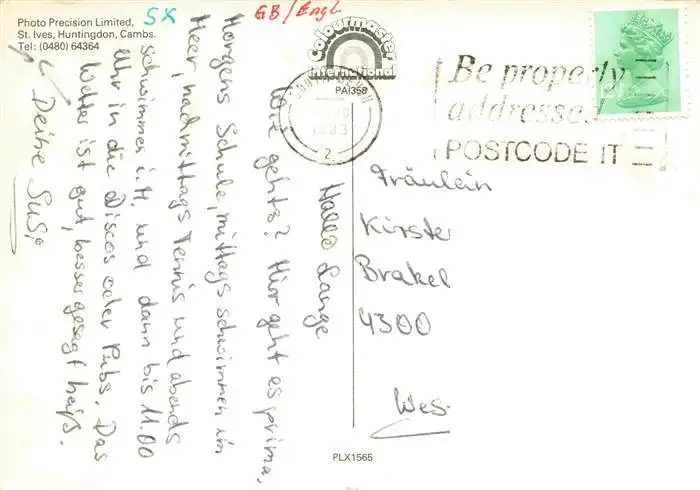 Photo Precision Limited,
St. Ives, Huntingdon, Cambs.
Tel: (0480) 64364
SX
GB/Engl.
Colourmaster
International
PAI358
1983
2
Be properly
addressed
POSTCODE IT
Hallo Lange
Wie gehts? Hier geht es prima,
Morgens Schule, mittags schwimmen im
Meer, nachmittags Tennis und abends
schwimmen i.H. und dann bis 11.00
Uhr in die Discos oder Pubs. Das
Wetter ist gut, besser gesagt heiß.
Deine Susi
Fräulein
Kirste
Brakel
4300
Wes
PLX1565